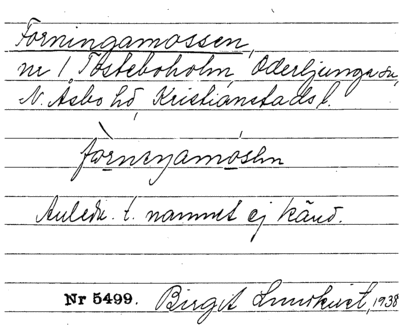 Forningamossen,
nr 1, Tösteboholm, Oderljunga sn,
N. Åsbo hd, Kristianstads l.
Anledn. t. namnet ej känd.
Nr 5499. Birgit Lundkvist, 1938